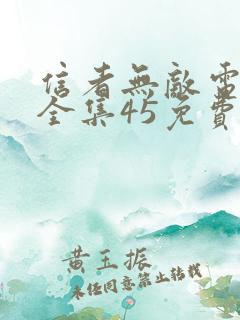 信者無敵電
全集45免費
黄玉振
未經同意禁止轉載